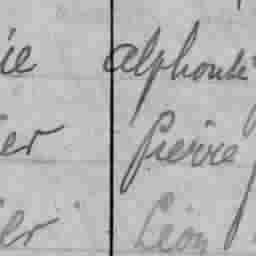 ie alphonse
er Pierre
er Léon